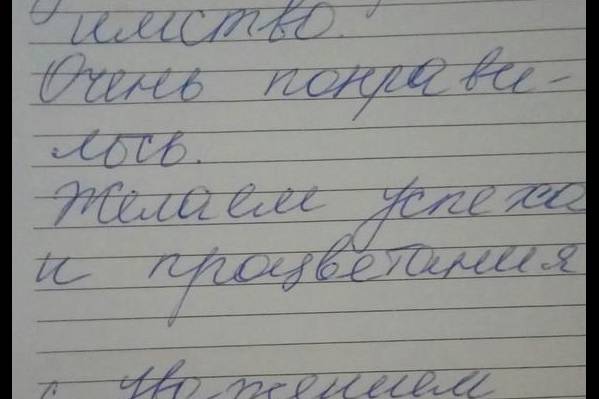 имство.
Очень понрави-
лось.
Желаем успеха
и процветания
с Уважением